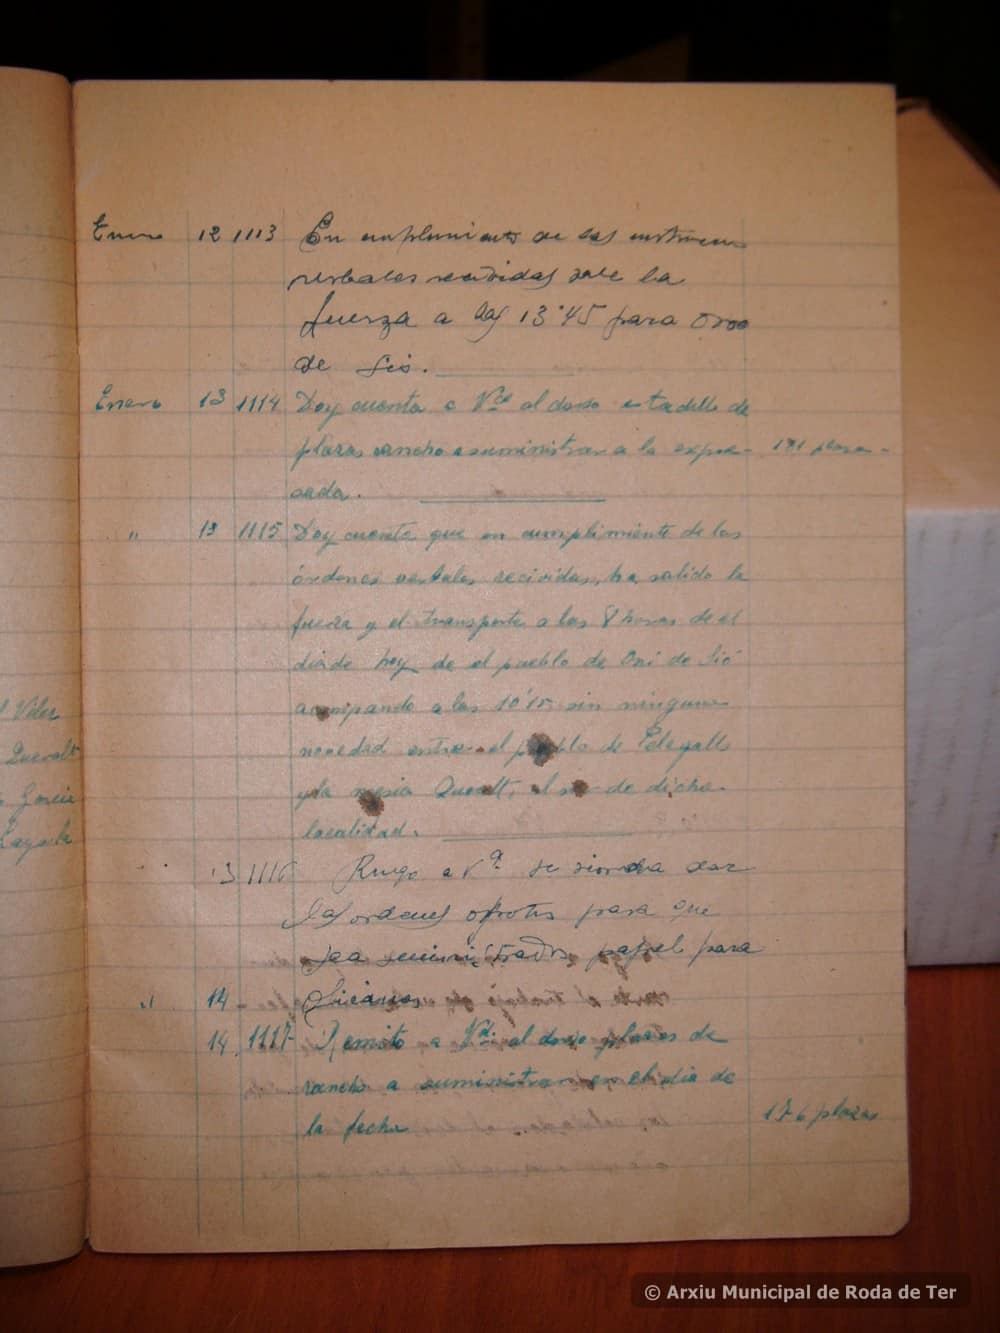 Enero 12 1113 En cumplimiento de las instrucciones
verbales recividas sale la
fuerza a las 13'45 para Oroo
de Sió.
Enero 13 1114 Doy cuenta a Vd al dorso estadillo de
plazas rancho a suministrar a la expre- 181 plazas
sada.
" 13 1115 Doy cuenta que en cumplimiento de las
órdenes verbales recividas, ha salido la
fuerza y el transporte a las 8 horas de el
dia de hoy de el pueblo de Oni de Sió
acampando a las 10'15 sin ninguna
novedad entre el pueblo de Pelegalls
y la masia Queralt, al sur de dicha
localidad.
13 1116 Ruego a Vd. se sirva dar
las ordenes oportunas para que
sea suministrado papel para
" 14 oficinas
14 1117 Remito a Vd. al dorso plazas de
rancho a suministrar en el dia de
la fecha 176 plazas
Viler
Queralt
Garcia
© Arxiu Municipal de Roda de Ter